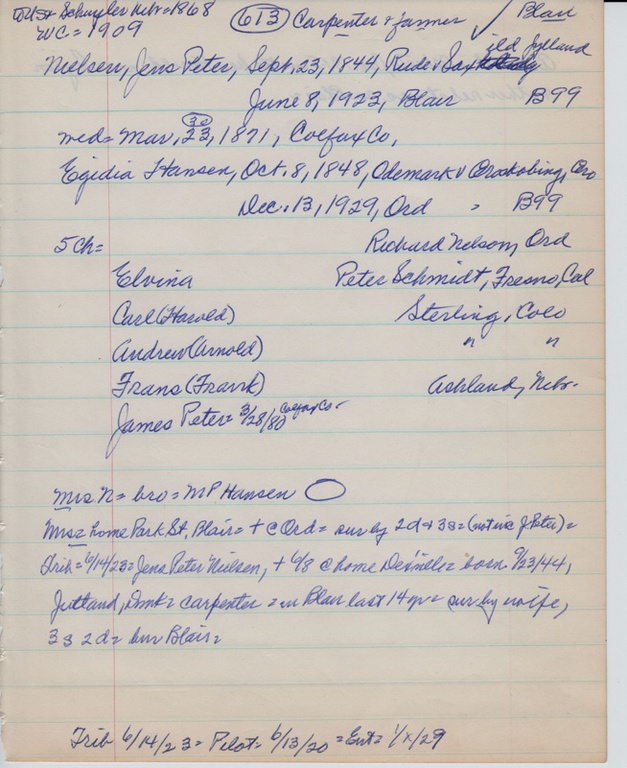 US + Schuyler Nebr = 1868 (613) Carpenter + farmer ✓ Blair
WC = 1909
Nielsen, Jens Peter, Sept. 23, 1844, Rude v Sax Jylland
June 8, 1923, Blair B99
30
med = Mar. 23, 1871, Colfax Co,
Egidia Hansen, Oct. 8, 1848, Odemark v
Dec. 13, 1929, Ord " B99
5 ch = Richard Nelson, Ord
Elvina Peter Schmidt, Fresno, Cal
Carl (Harold) Sterling, Colo
Andrew (Arnold) " "
Frans (Frank) Ashland, Nebr.
James Peter = 3/28/80 Colfax Co.
Mrs N = bro = M P Hansen
Mrs = home Park St. Blair = + c Ord = sur by 2d + 3s = (not inc J Peter) =
Trib = 6/14/23 = Jens Peter Nielsen, + 6/8 c home = born 9/23/44,
Jutland, Dmk = carpenter = in Blair last 14 yr = sur by wife,
3s 2d = bur Blair =
Trib 6/14/23 = Pilot = 6/13/20 = Ent = 1/x/29